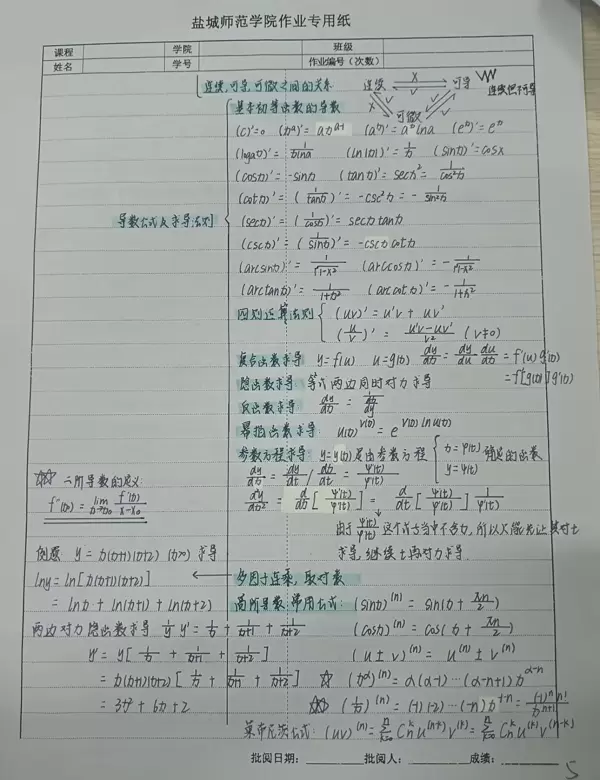 盐城师范学院作业专用纸
课程 学院 班级
姓名 学号 作业编号（次数）
连续,可导,可微之间的关系 连续 可导 可微 连续但不可导
基本初等函数的导数
(c)'=0 (x^a)'=ax^{a-1} (a^x)'=a^x lna (e^x)'=e^x
(log_a x)'=1/(xlna) (ln|x|)'=1/x (sinx)'=cosx
(cosx)'=-sinx (tanx)'=secx^2=1/cos^2x
(cotx)'=(1/tanx)'=-csc^2x=-1/sin^2x
导数公式及求导法则
(secx)'=(1/cosx)'=secxtanx
(cscx)'=(1/sinx)'=-cscxcotx
(arcsinx)'=1/√(1-x^2) (arccosx)'=-1/√(1-x^2)
(arctanx)'=1/(1+x^2) (arccotx)'=-1/(1+x^2)
四则运算法则 (uv)'=u'v+uv'
(u/v)'=(u'v-uv')/v^2 (v≠0)
复合函数求导 y=f(u) u=g(x) dy/dx=dy/du du/dx=f'(u)g'(x)
=f'[g(x)]g'(x)
隐函数求导: 等式两边同时对x求导
反函数求导 dy/dx=1/(dx/dy)
幂指函数求导: u(x)^{v(x)}=e^{v(x)lnu(x)}
参数方程求导: y=y(x)是由参数方程 {x=φ(t) y=ψ(t) 确定的函数
dy/dx=dy/dt/dx/dt=ψ'(t)/φ'(t)
d^2y/dx^2=d/dx[ψ'(t)/φ'(t)]=d/dt[ψ'(t)/φ'(t)]1/φ'(t)
由于ψ'(t)/φ'(t)这个式子当中不含x,所以只能先让其对t
求导,继续t再对x求导.
☆☆ 二阶导数的定义:
f''(x_0)=lim_{x→x_0} f'(x)/(x-x_0)
例题 y=x(x+1)(x+2) (x>0) 求导
lny=ln[x(x+1)(x+2)] ← 多因子连乘,取对数
=lnx+ln(x+1)+ln(x+2)
两边对x隐函数求导 1/y y'=1/x+1/(x+1)+1/(x+2)
y'=y[1/x+1/(x+1)+1/(x+2)]
=x(x+1)(x+2)[1/x+1/(x+1)+1/(x+2)]
=3x^2+6x+2
高阶导数,常用公式: (sinx)^{(n)}=sin(x+πn/2)
(cosx)^{(n)}=cos(x+πn/2)
(u±v)^{(n)}=u^{(n)}±v^{(n)}
☆ (x^α)^{(n)}=α(α-1)…(α-n+1)x^{α-n}
☆☆ (1/x)^{(n)}=(-1)(-2)…(-n)x^{-1-n}=(-1)^n n!/x^{n+1}
莱布尼茨公式: (uv)^{(n)}=∑_{k=0}^n C_n^k u^{(n-k)}v^{(k)}=∑_{k=0}^n C_n^k u^{(k)}v^{(n-k)}
批阅日期： 批阅人： 成绩：
5